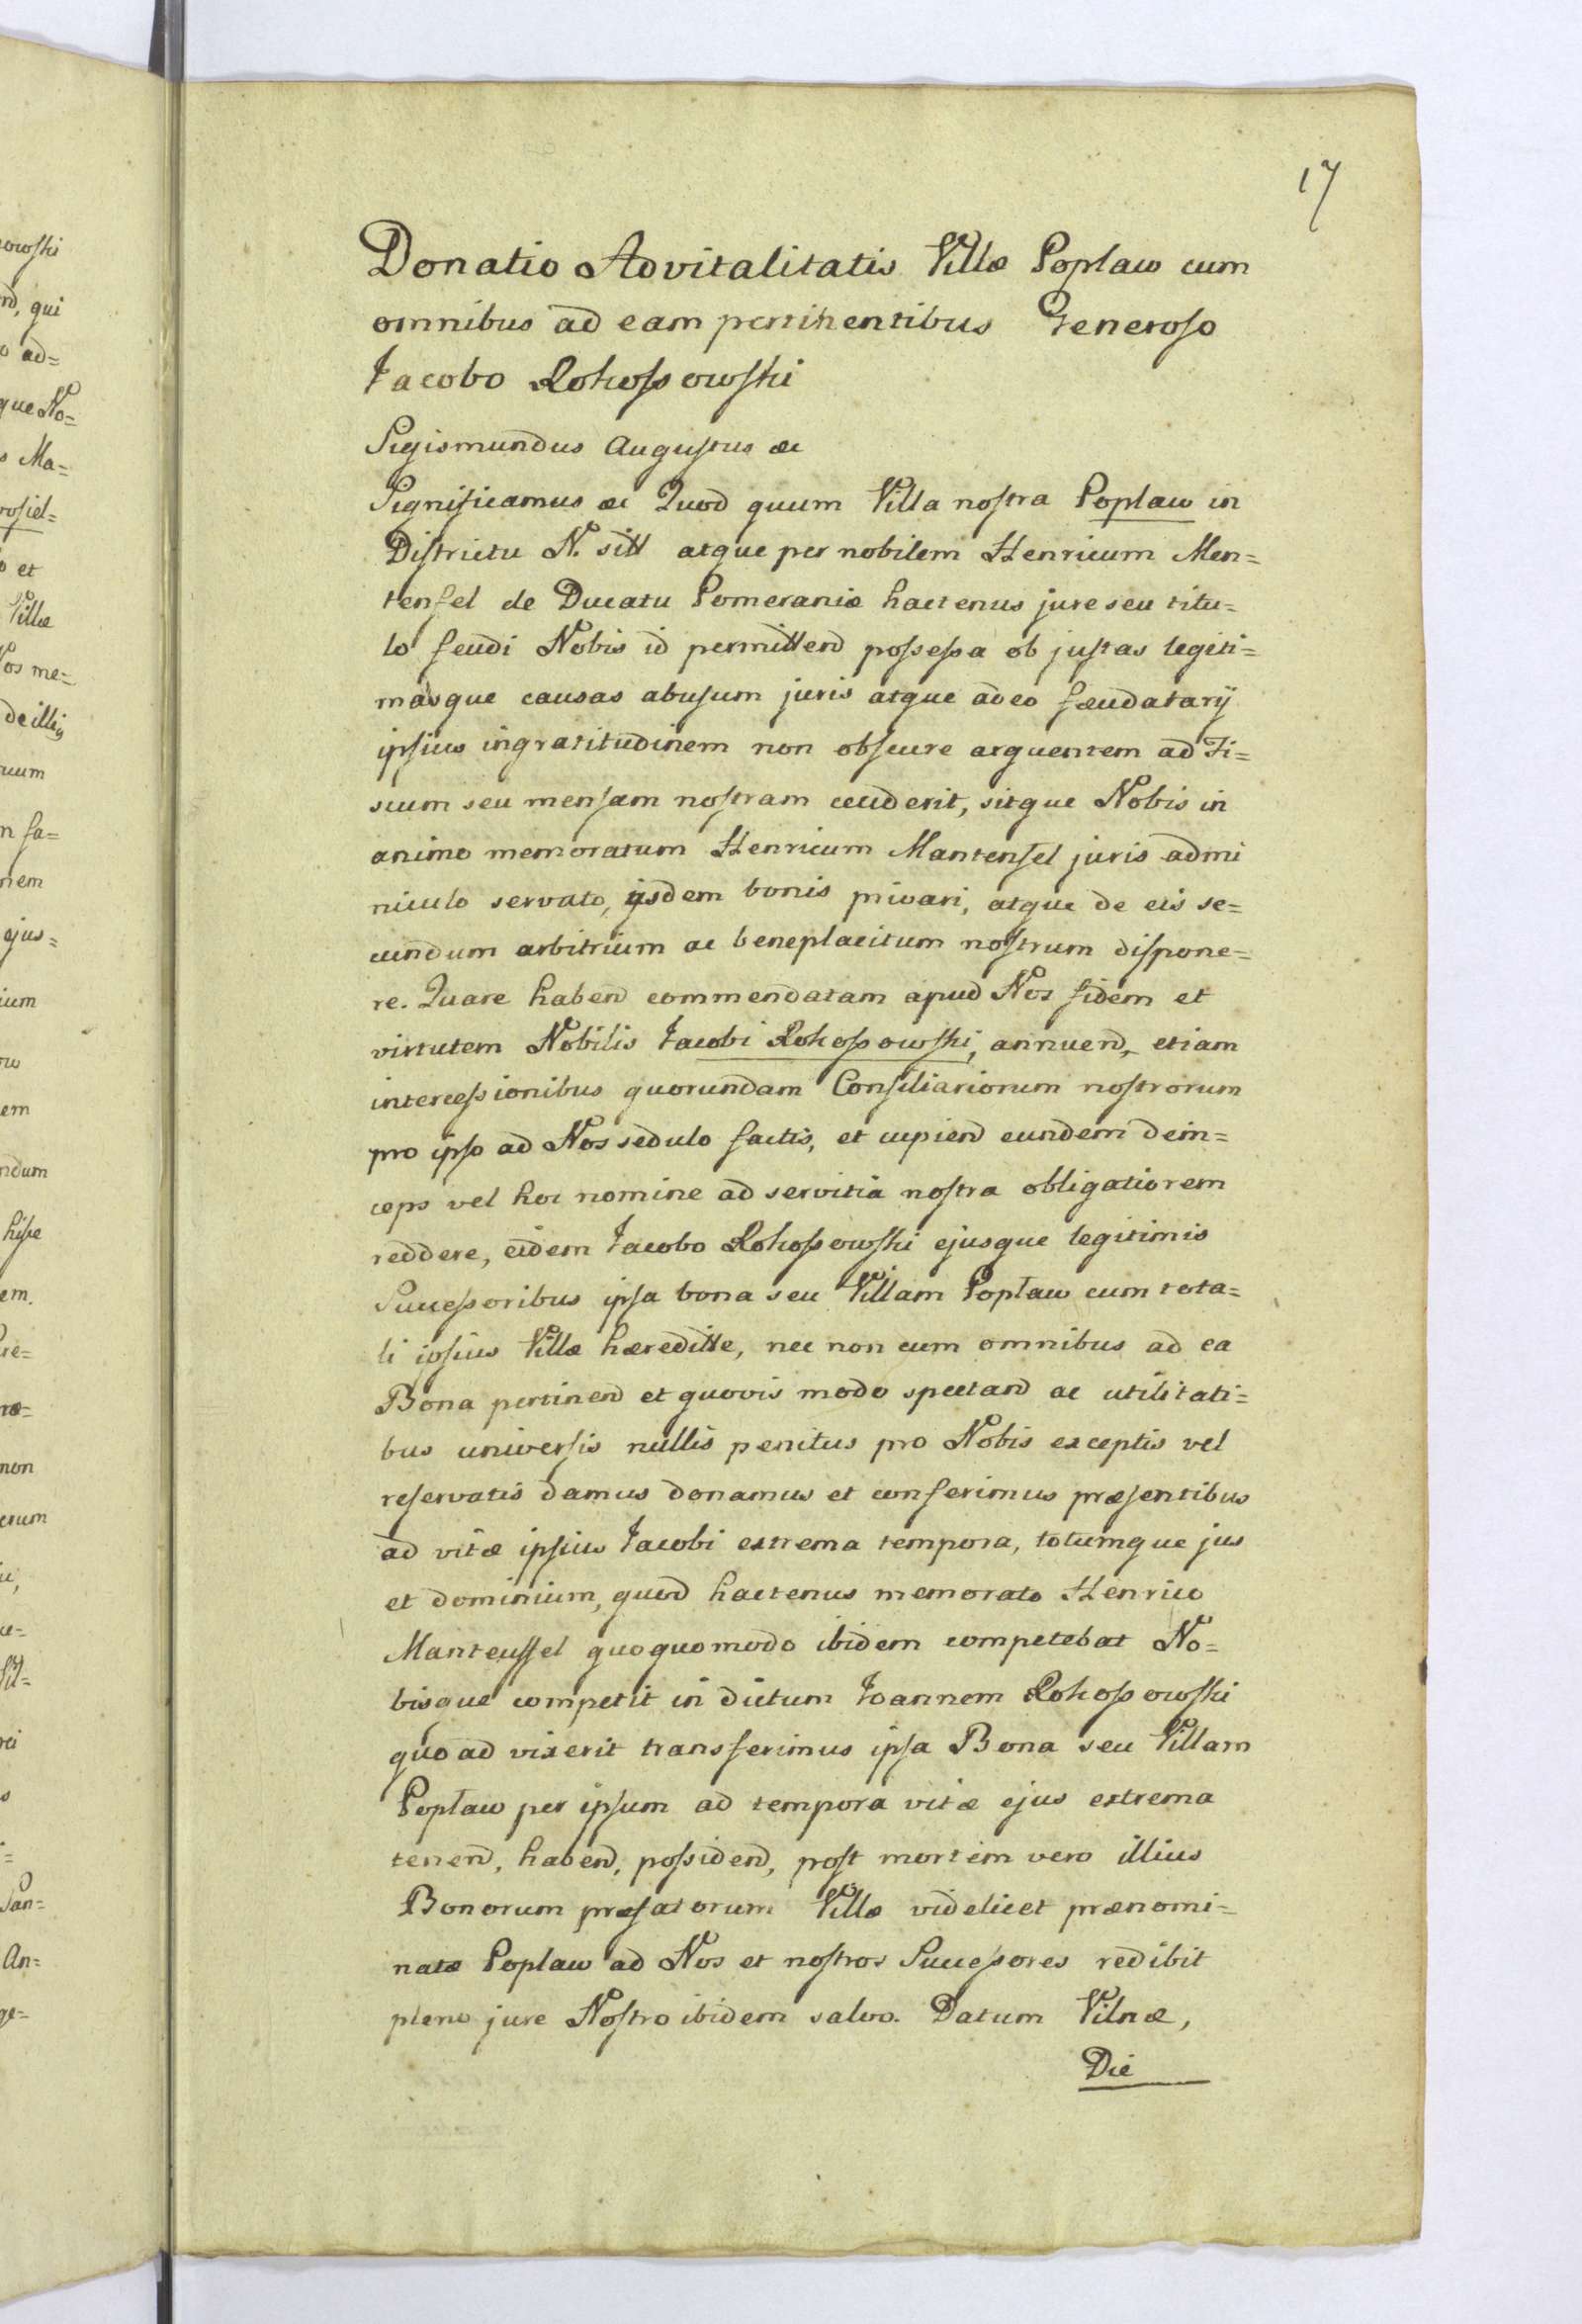 17
Donatio Advitalitatis Villæ Poplaw cum
omnibus ad eam pertinentibus Generoso
Jacobo Rokossowski
Sigismundus Augustus æc
Significamus æc Quod quum Villa nostra Poplaw in
Districtu N. sitt atque per nobilem Henricum Men=
tensel de Ducatu Pomeraniæ hactenus jure seu titu=
lo feudi Nobis id permittend possessa ob justas legiti=
masque causas abusum juris atque adeo fæudatarij
ipsius ingratitudinem non obscure arguentem ad Fi=
scum seu mensam nostram ceciderit, sitque Nobis in
animo memoratum Henricum Mantensel juris admi
niculo servato, ijsdem bonis privari, atque de eis se=
cundum arbitrium ac beneplacitum nostrum dispone=
re. Quare habend commendatam apud Nos fidem et
virtutem Nobilis Jacobi Rokossowski, annuend, etiam
intercessionibus quorundam Consiliariorum nostrorum
pro ipso ad Nos sedulo factis, et cupiend eundem dein=
ceps vel hoc nomine ad servitia nostra obligatiorem
reddere, eidem Jacobo Rokossowski ejusque legitimis
Successoribus ipsa bona seu Villam Popław cum tota=
li ipsius Villæ hæreditte, nec non cum omnibus ad ea
Bona pertinend et quovis modo spectand ac utilitati=
bus universis nullis penitus pro Nobis exceptis vel
reservatis damus donamus et conferimus præsentibus
ad vitæ ipsius Jacobi extrema tempora, totumque jus
et dominium, quod hactenus memorato Henrico
Manteuffel quoquomodo ibidem competebat No=
bisque competit in dictum Joannem Rokossowski
quoad vixerit transferimus ipsa Bona seu Villam
Popław per ipsum ad tempora vitæ ejus extrema
tenend, habend, possidend, post mortem vero illius
Bonorum præfatorum Villæ videlicet prænomi=
natæ Poplaw ad Nos et nostros Successores redibit
pleno jure Nostro ibidem salvo. Datum Vilnæ,
Die